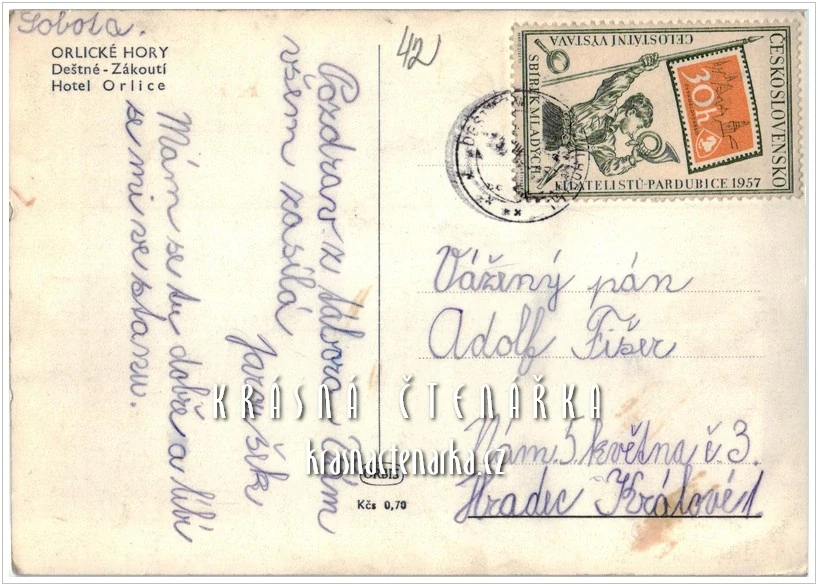 Sobota.
ORLICKÉ HORY
Deštné - Zákoutí
Hotel Orlice
42
Pozdrav z tábora Vám
všem zasílá
Jaroušek
Mám se tu dobře a líbí
se mi ve stanu.
ČESKOSLOVENSKO
CELOSTÁTNÍ VÝSTAVA
SBÍREK MLADÝCH
FILATELISTŮ·PARDUBICE 1957
30h
Vážený pán
Adolf Fišer
Nám 5 května č 3.
Hradec Králové 1
KRÁSNÁ ČTENÁŘKA
krasnactenarka.cz
ORBIS
Kčs 0,70